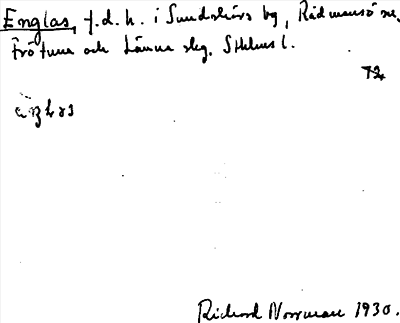 Englas, f.d.h. i Sundskärs by, Rådmansö sn,
Frötuna och Länna skg. Sthlms l.
72
Richard Norrman 1930.